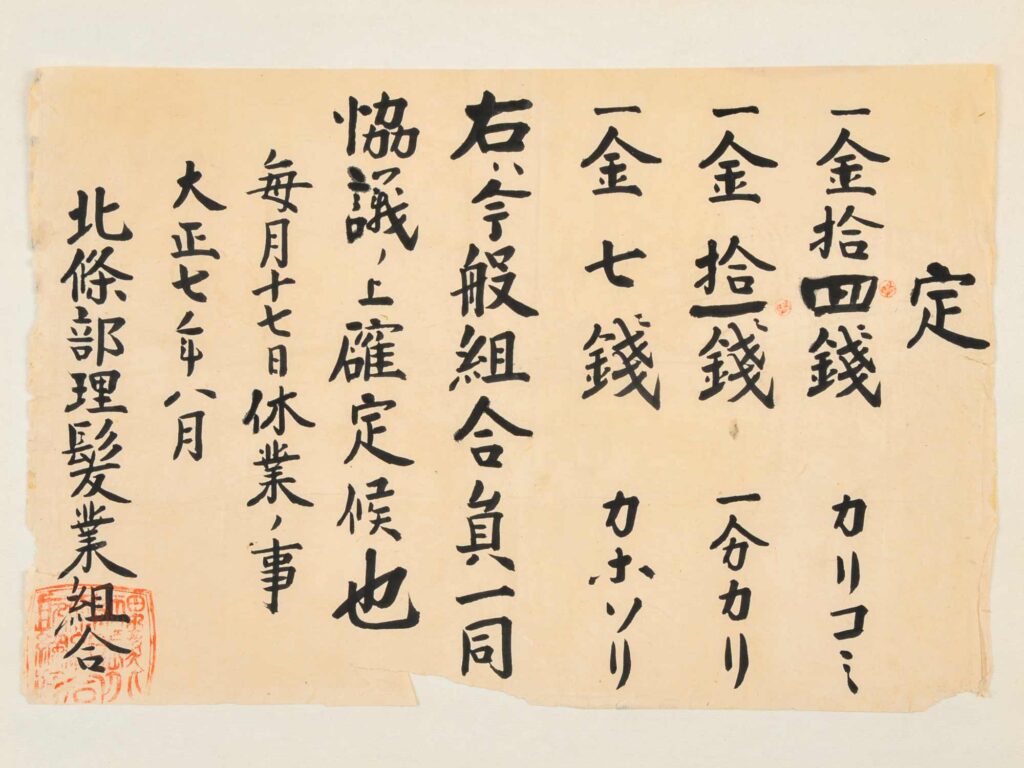 定
一金拾四錢 カリコミ
一金拾一錢 一分カリ
一金七錢 カホソリ
右ハ今般組合員一同
協議ノ上確定候也
毎月十七日休業ノ事
大正七年八月
北條部理髪業組合